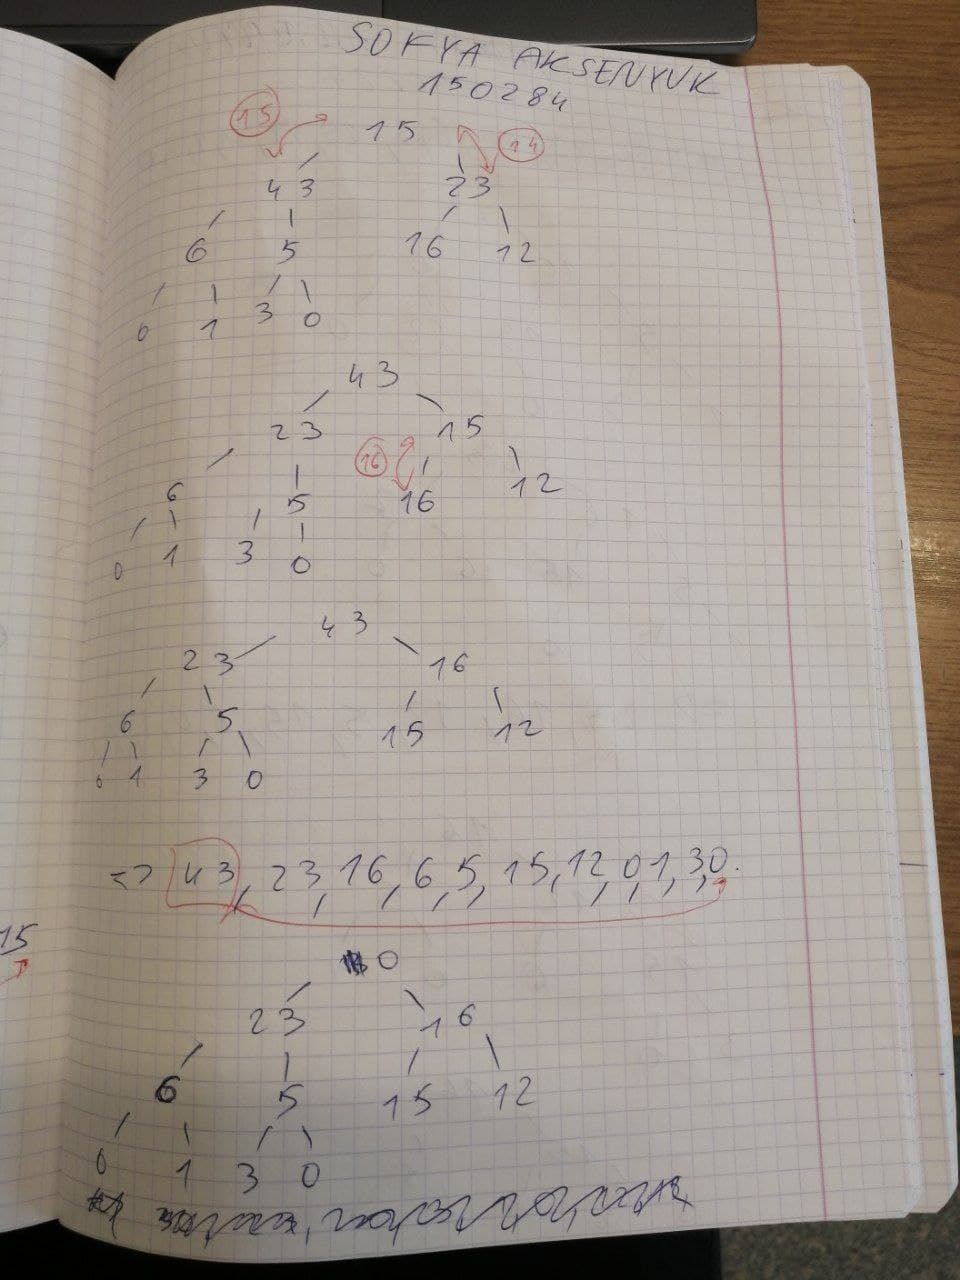 SOFYA AKSENYUK
150284
15 15 14
43 23
6 5 16 12
0 1 3 0
43
23 15
16
6 5 16 12
0 1 3 0
43
23 16
6 5 15 12
0 1 3 0
=> 43, 23, 16, 6, 5, 15, 12, 0, 1, 3, 0.
15
0
23 16
6 5 15 12
0 1 3 0